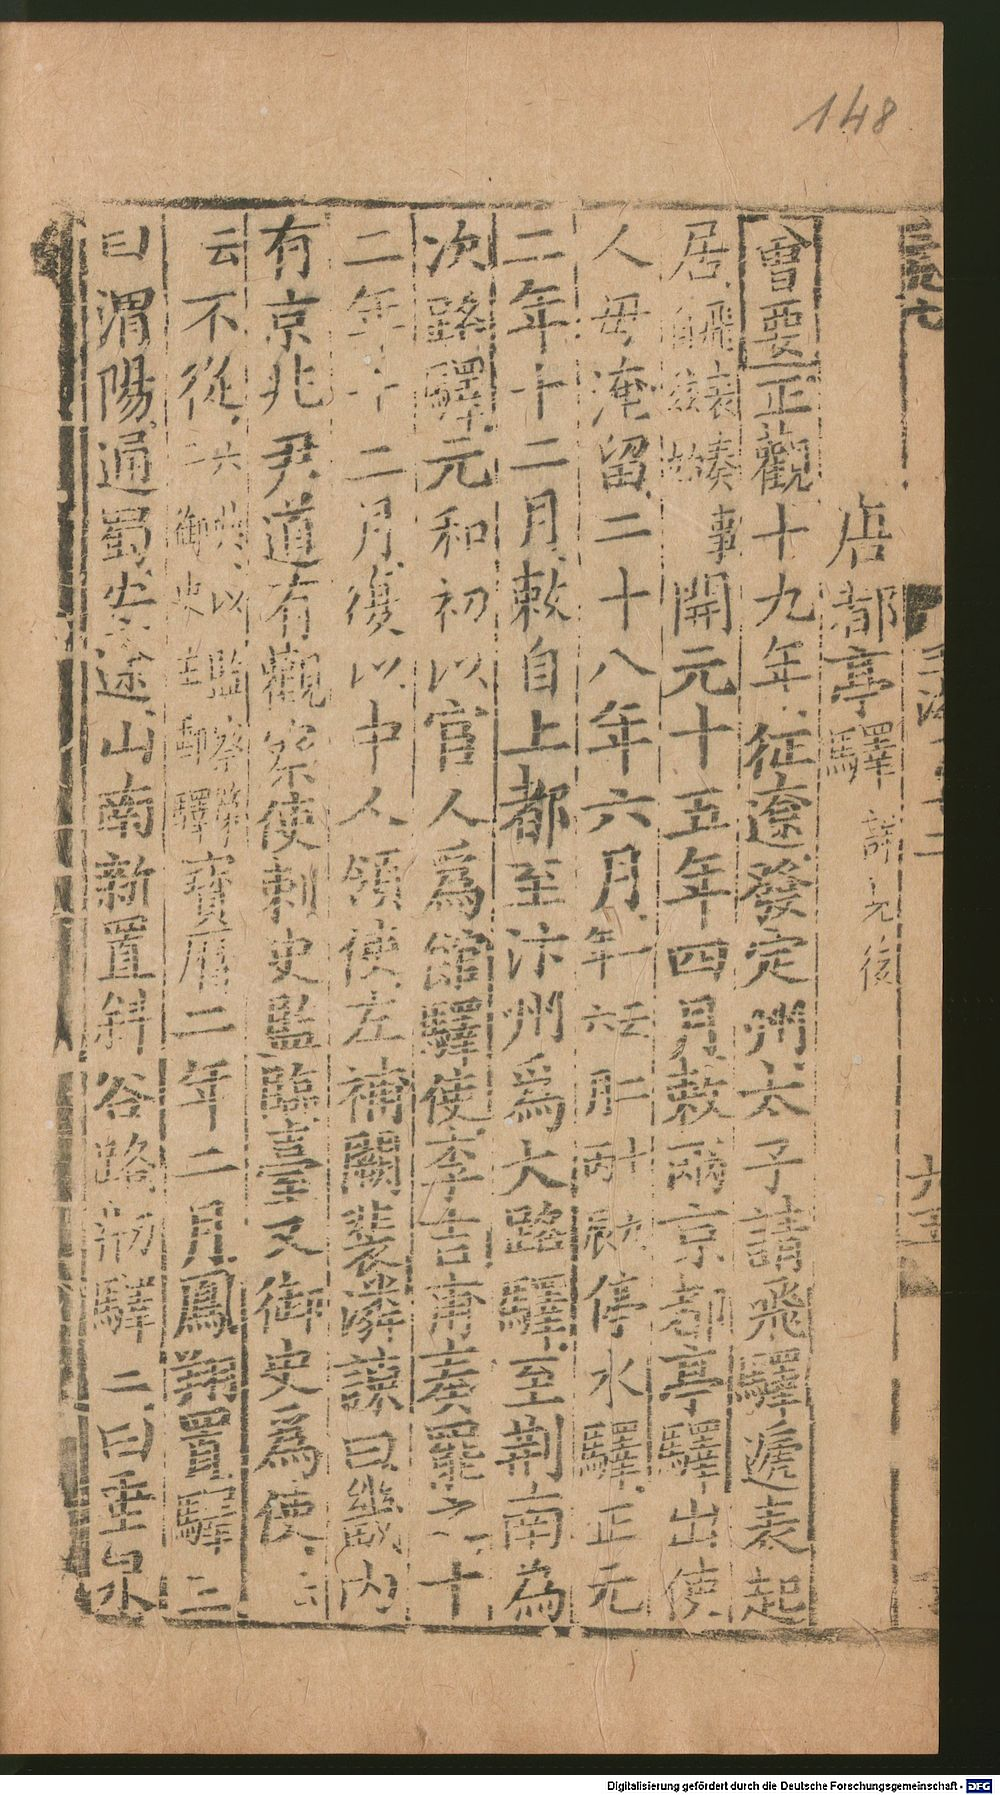 148
唐都亭驛 詳見後
會要正觀十九年征遼發定州太子請飛驛遞表起
居飛表奏事自玆始開元十五年四月敕兩京都亭驛出使
人毋淹留二十八年六月一年六月一云二十辰敕停水驛正元
二年十二月敕自上都至汴州爲大路驛至荆南為
次路驛元和初以宦人爲館驛使李吉甫奏罷之十
二年十二月復以中人領使左補闕裴潾諫曰畿內
有京兆尹道有觀察使刺史監臨臺又御史爲使云
云不從六典以監察第二御史主郵驛寶曆二年二月鳳翔置驛三
曰渭陽通蜀 途山南新置斜谷路剏驛二曰垂泉
Digitalisierung gefördert durch die Deutsche Forschungsgemeinschaft - DFG